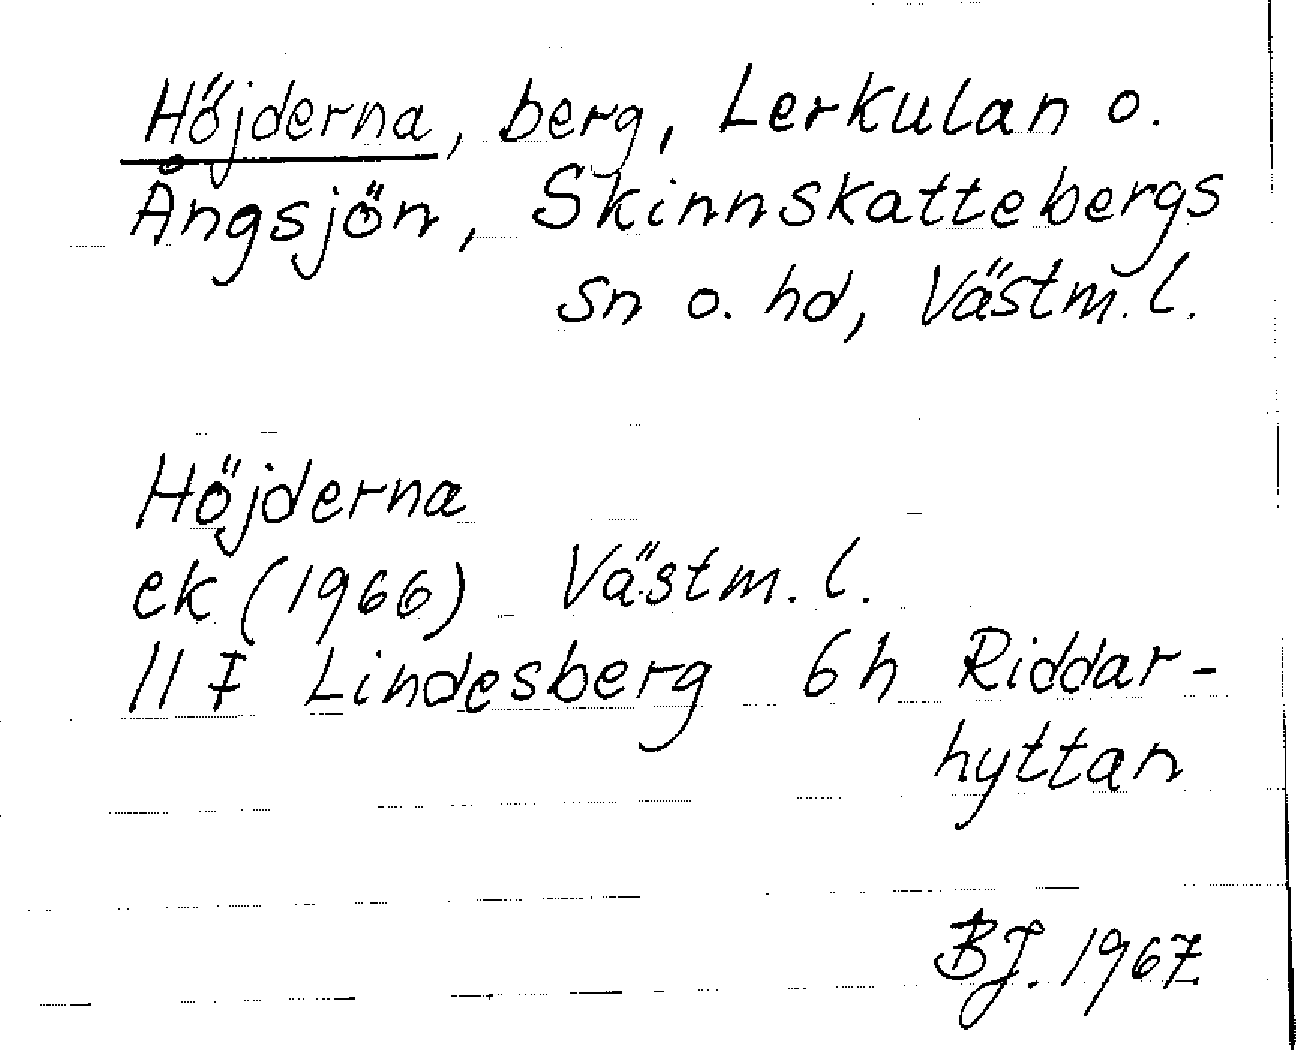 Höjderna, berg, Lerkulan o.
Ångsjön, Skinnskattebergs
sn o. hd, Västm. l.
Höjderna
ek (1966) Västm. l.
11 F Lindesberg 6h Riddar-
hyttan
BJ. 1967